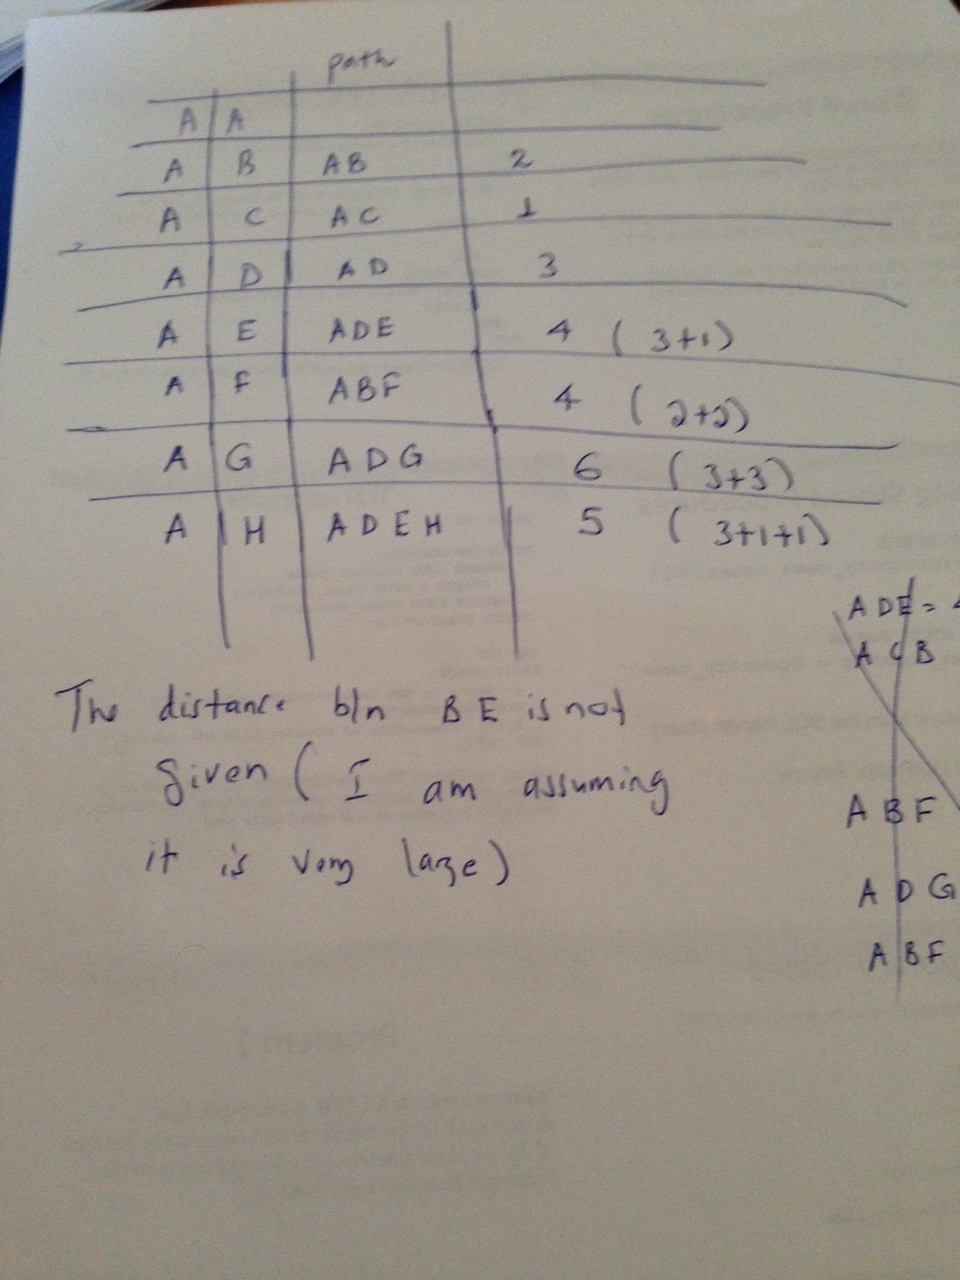 path
A A
A B AB 2
A C AC 1
A D AD 3
A E ADE 4 (3+1)
A F ABF 4 (2+2)
A G ADG 6 (3+3)
A H ADEH 5 (3+1+1)
ADE =
A C B
The distance b/n BE is not
given (I am assuming
A B F
it is very large)
A D G
A B F